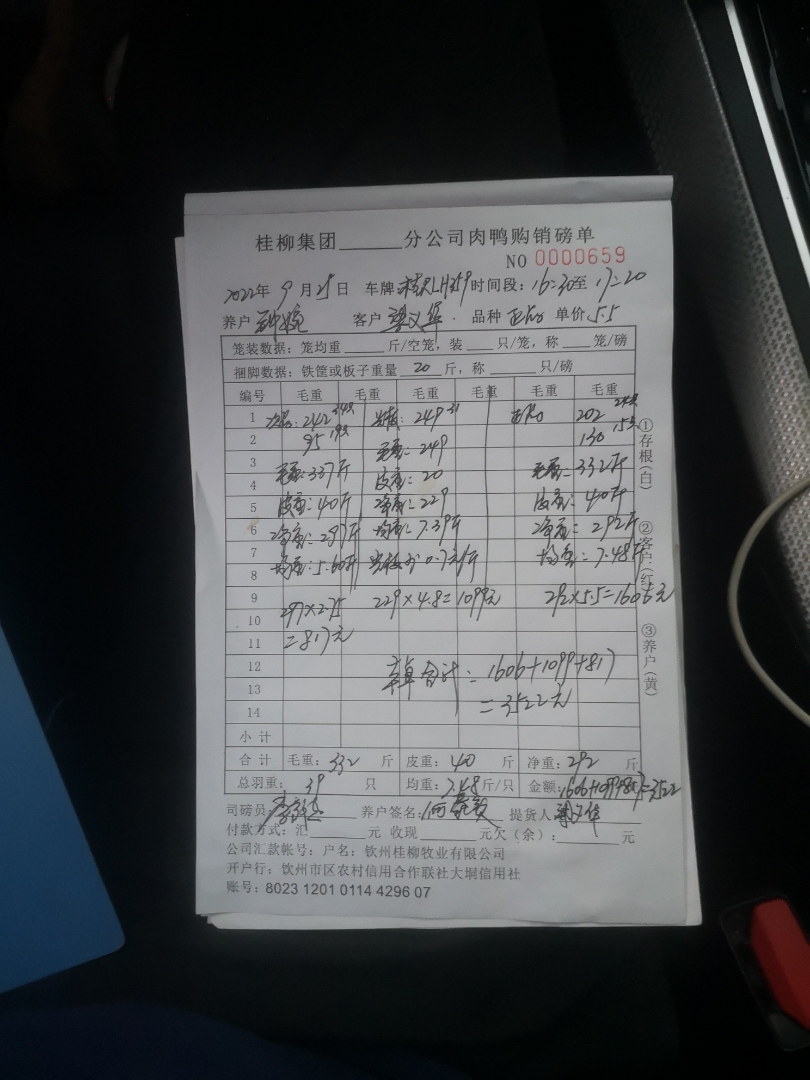 桂柳集团______分公司肉鸭购销磅单
NO 0000659
2022年9月25日 车牌: 时间段：16:30至17:20
养户 客户 梁义华 品种 正品 单价 5.5
笼装数据：笼均重______斤/空笼，装____只/笼，称____笼/磅
捆脚数据：铁筐或板子重量 20 斤，称______只/磅
编号 毛重 毛重 毛重 毛重 毛重 毛重
1 次品：242 249 31 正品 202 24只
2 95 19只 130 15只
3 毛重：337斤 毛重：249 毛重：332斤
4 皮重：20
5 皮重：40斤 净重：229 皮重：40斤
6 净重：297斤 均重：7.39斤 净重：292斤
7 均重：7.48斤
8 均重：5.60斤 0.7元/斤
9 297×2.75 229×4.8=1099元 292×5.5=1606元
10
11 =817元
12 合计：1606+1099+817
13 =3522元
14
小计
合计 毛重：332 斤 皮重：40 斤 净重：292 斤
总羽重：39 只 均重：7.48斤/只 金额：1606+1099+817=3522
司磅员： 养户签名： 提货人：梁义华
付款方式：汇______元 收现______元欠（余）：______元
公司汇款帐号：户名：钦州桂柳牧业有限公司
开户行：钦州市区农村信用合作联社大垌信用社
账号：8023 1201 0114 4296 07
①存根(白)
②客户(红)
③养户(黄)